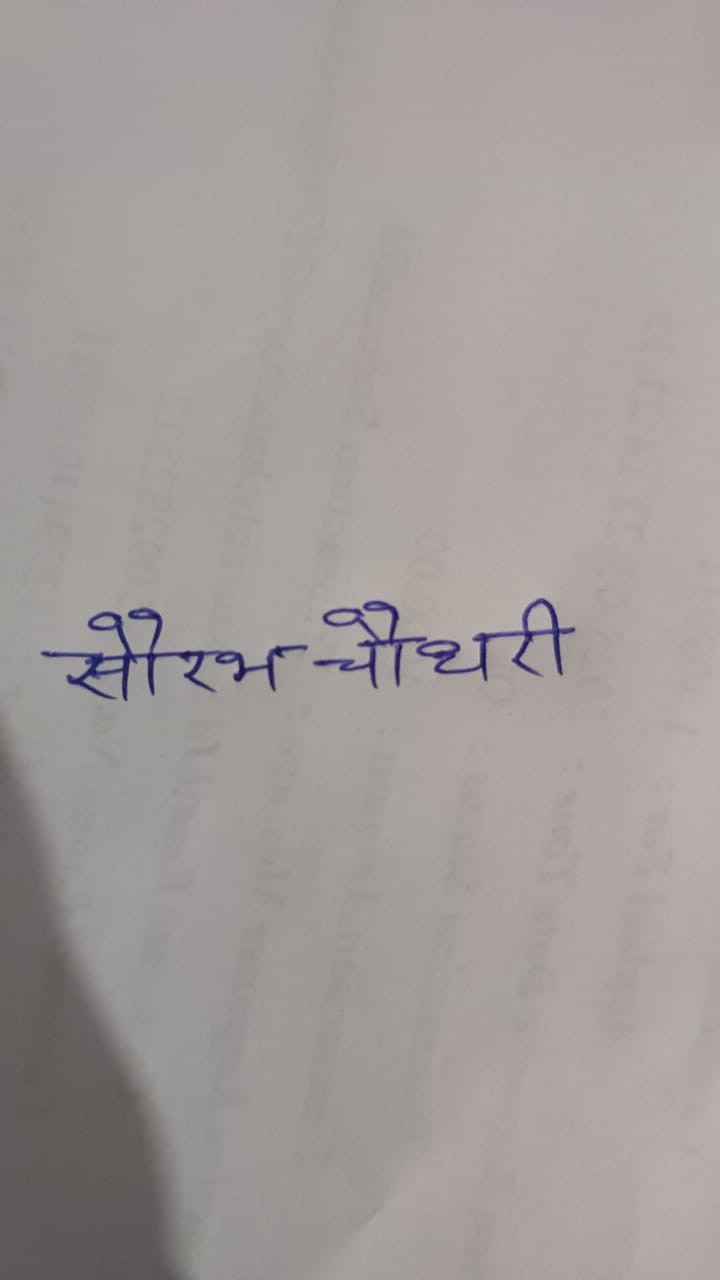 सौरभ चौधरी